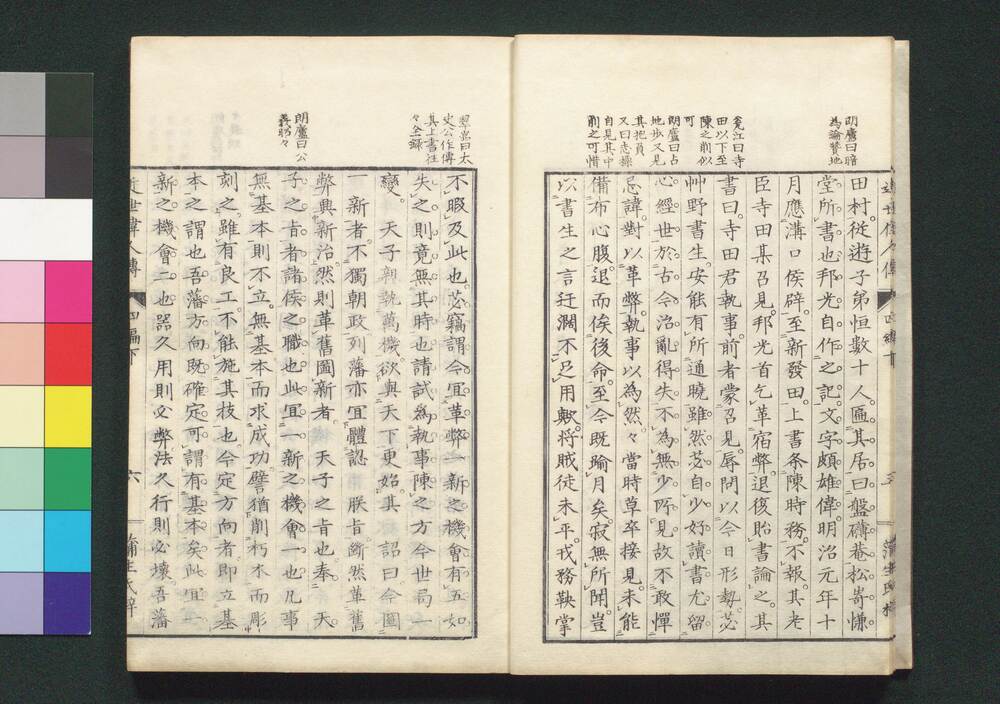 朗廬曰暗
為論贊地
田村從遊子弟恒數十人匾其居曰盤礴菴松崎慊
堂所書也邦光自作之記文字頗雄偉明治元年十
月應溝口侯辟至新發田上書条陳時務不報其老
臣寺田某召見邦光首乞革宿弊退後貽書論之其
書曰寺田君執事前者蒙召見辱問以今日形勢苾
艸野書生安能有所通曉雖然苾自少好讀書尤留
心經世於古今治亂得失不為無少所見故不敢憚
忌諱對以革弊執事以為然々當時草卒接見未能
備布心腹退而俟後命至今既踰月矣寂無所聞豈
以書生之言迂濶不足用歟將賊徒未平戎務鞅掌
瓮江曰寺
田以下至
陳之削似
可
朗廬曰占
地歩又見
其抱負
又曰志操
自見其中
削之可惜
不暇及此也苾竊謂今宜革弊一新之機會有五如
失之則竟無其時也請試為執事陳之方今世局一
變 天子親執萬機欲與天下更始其 詔曰今圖
一新者不獨朝政列藩亦宜體認 朕旨斷然革舊
弊興新治然則革舊圖新者 天子之旨也奉 天
子之旨者諸侯之職也此宜一新之機會一也凡事
無基本則不立無基本而求成功譬猶削朽木而彫
刻之雖有良工不能施其技也今定方向者即立基
本之謂也吾藩方向既確定可謂有基本矣此宜一
新之機會二也器久用則必弊法久行則必壞吾藩
曰太
史公作傳
其上書往
々全錄
朗廬曰公
義明々
近世偉人傳
四編下
六
蒲生氏梓